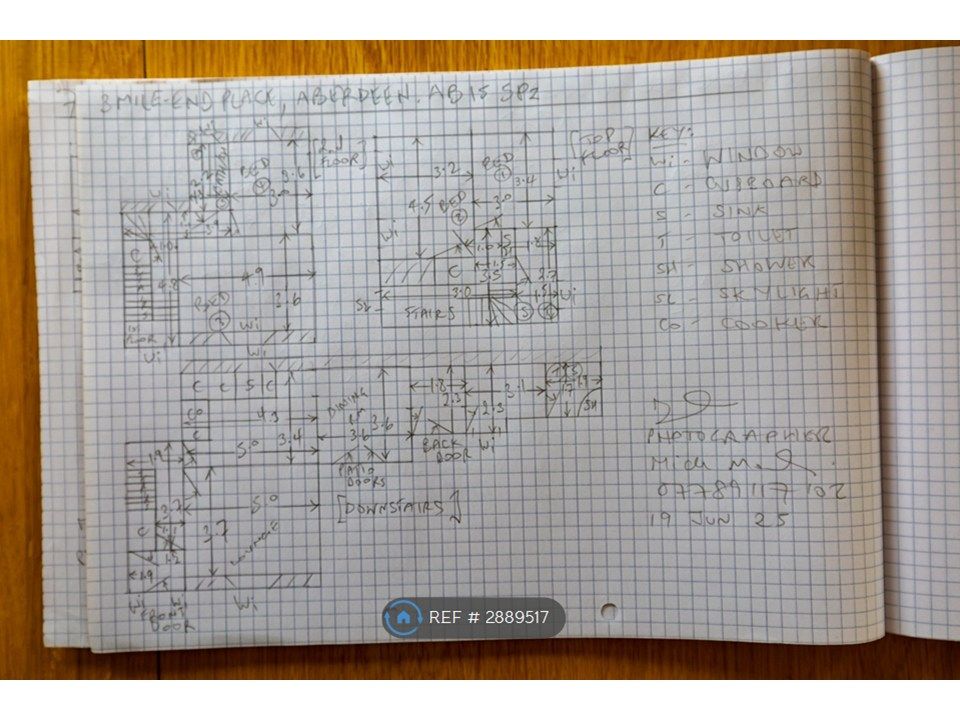 3 MILE-END PLACE, ABERDEEN. AB15 5PZ
[2nd FLOOR]
Wi
Wi
BED
4
2.6
3.0
Wi
C
4.8
4.9
2.6
BED
3
Wi
Wi
[TOP FLOOR]
Wi
3.2
BED
1
3.4
Wi
4.5
BED
2
3.0
Wi
1.0
1.8
C
1.5
3.5
2.7
SL
3.0
1.5
Wi
STAIRS
5
KEY:
Wi - WINDOW
C - CUBBOARD
S - SINK
T - TOILET
SH - SHOWER
SL - SKYLIGHT
Co - COOKER
Wi
C C S C
Co
C
4.3
3.4
5.0
DINING
3.6
3.6
PATIO DOORS
1.8
2.3
BACK DOOR
2.3
Wi
3.1
1.7
1.9
SH
[DOWNSTAIRS]
1.9
C
2.7
1.2
1.9
5.0
3.7
Wi
Wi
FRONT DOOR
Wi
PHOTOGRAPHER
07789 117 102
19 JUN 25
REF # 2889517